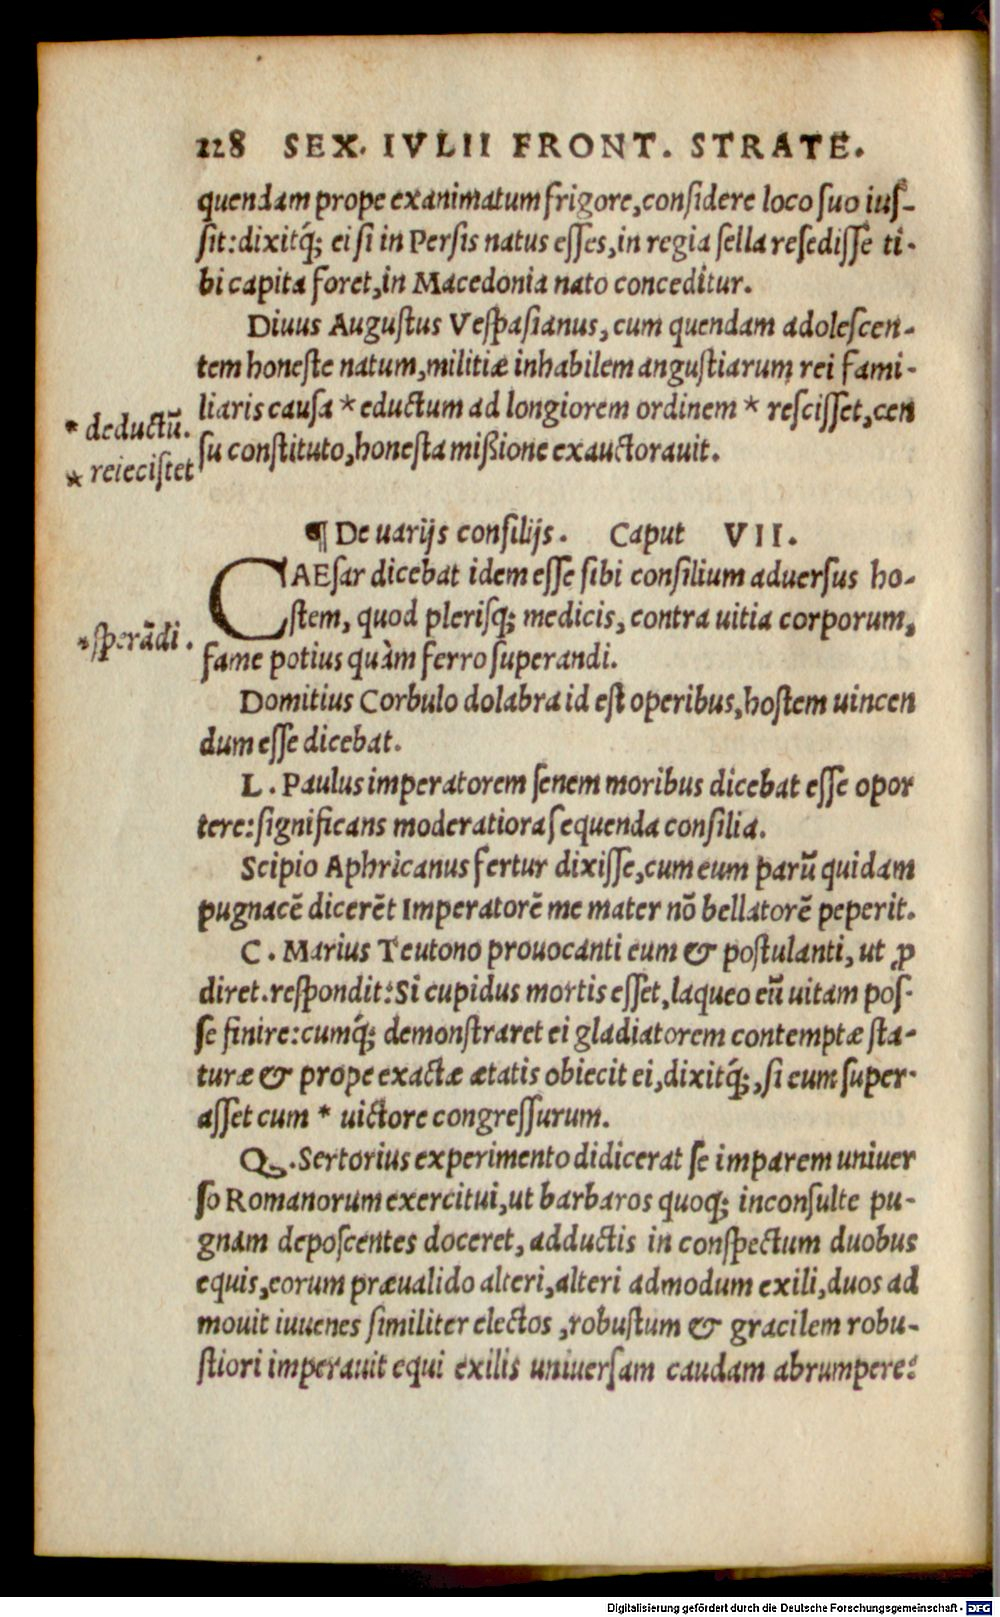 128 SEX. IVLII FRONT. STRATE.
quendam prope exanimatum frigore, considere loco suo ius-
sit: dixitq́; ei si in Persis natus esses, in regia sella resedisse ti-
bi capita foret, in Macedonia nato conceditur.
Diuus Augustus Vespasianus, cum quendam adolescen-
tem honeste natum, militiæ inhabilem angustiarum rei fami-
liaris causa * eductum ad longiorem ordinem * rescisset, cen
* deductũ.
su constituto, honesta mißione exauctorauit.
* reiecisset
¶ De uarijs consilijs. Caput VII.
CAESar dicebat idem esse sibi consilium aduersus ho-
stem, quod plerisq; medicis, contra uitia corporum,
*sperãdi.
fame potius quàm ferro superandi.
Domitius Corbulo dolabra id est operibus, hostem uincen
dum esse dicebat.
L. Paulus imperatorem senem moribus dicebat esse opor
tere: significans moderatiora sequenda consilia.
Scipio Aphricanus fertur dixisse, cum eum parũ quidam
pugnacẽ dicerẽt Imperatorẽ me mater nõ bellatorẽ peperit.
C. Marius Teutono prouocanti eum & postulanti, ut ꝓ
diret. respondit: Si cupidus mortis esset, laqueo eũ uitam pos-
se finire: cumq́; demonstraret ei gladiatorem contemptæ sta-
turæ & prope exactæ ætatis obiecit ei, dixitq́;, si eum super-
asset cum * uictore congressurum.
Q. Sertorius experimento didicerat se imparem uniuer
so Romanorum exercitui, ut barbaros quoq; inconsulte pu-
gnam deposcentes doceret, adductis in conspectum duobus
equis, eorum præualido alteri, alteri admodum exili, duos ad
mouit iuuenes similiter electos, robustum & gracilem robu-
stiori imperauit equi exilis uniuersam caudam abrumpere:
Digitalisierung gefördert durch die Deutsche Forschungsgemeinschaft - DFG